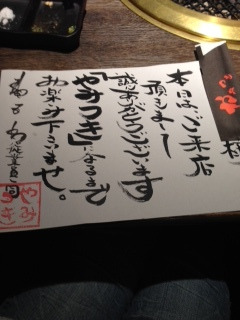 本日はご来店
頂きまして
誠にありがとうございます
「やみつき」になるまで
お楽み下さいませ。
従業員一同
やみつき
様